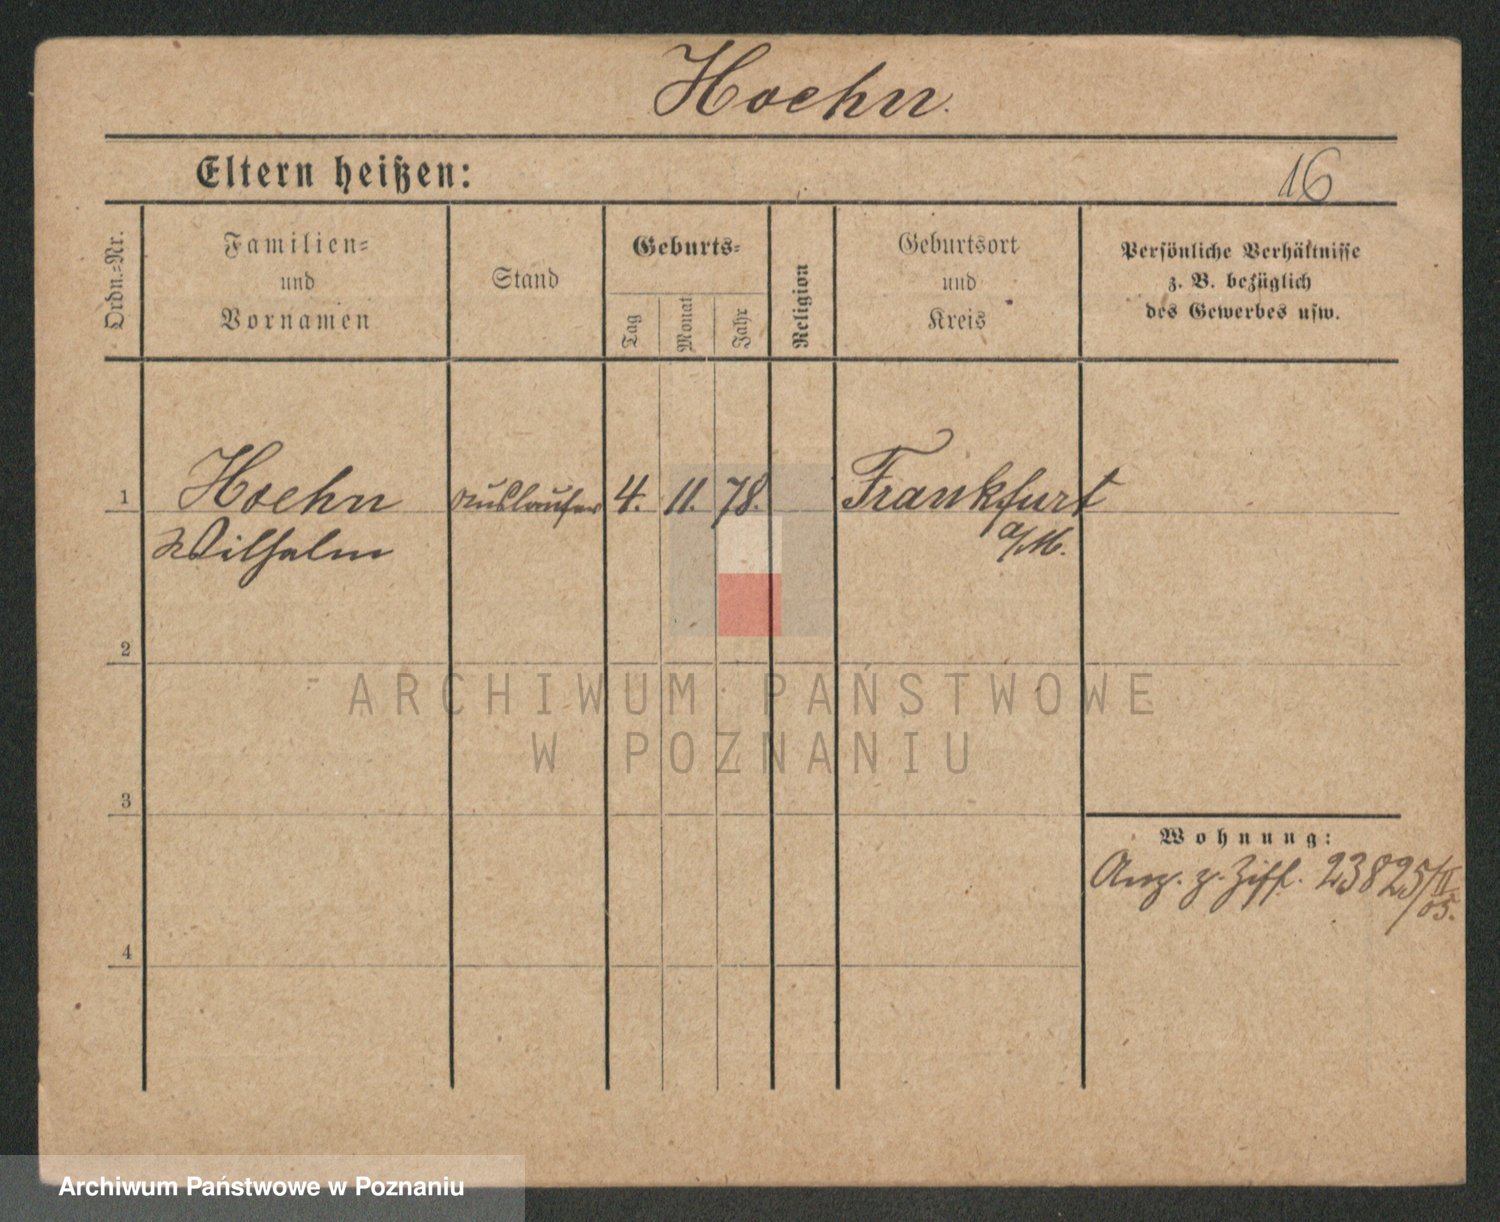 Hoehn.
Eltern heißen:
16
Ordn.-Nr.
Familien-
und
Vornamen
Stand
Geburts-
Tag
Monat
Jahr
Religion
Geburtsort
und
Kreis
Persönliche Verhältnisse
z. B. bezüglich
des Gewerbes usw.
1 Hoehn Auslaufer 4. 11. 78. Frankfurt
Wilhelm a/M.
2
ARCHIWUM PAŃSTWOWE
W POZNANIU
3
Wohnung:
Anz. z. Ziff. 23825/II
05.
4
Archiwum Państwowe w Poznaniu